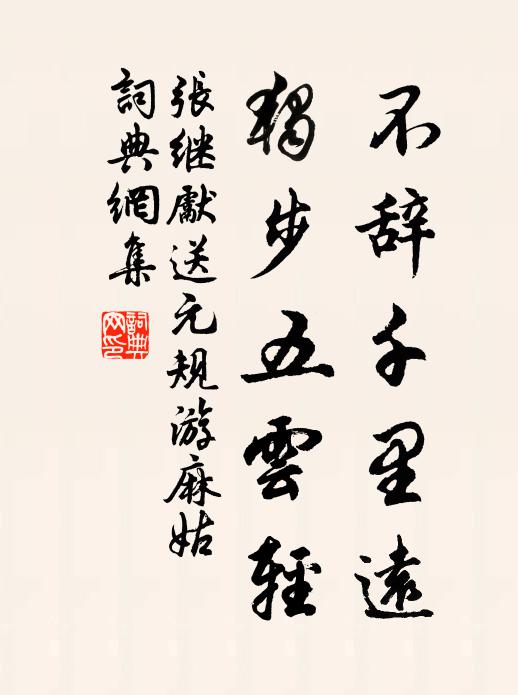 不辞千里遠
獨步五雲輕
張継獻送元規游麻姑
詞典網集
詞典網印